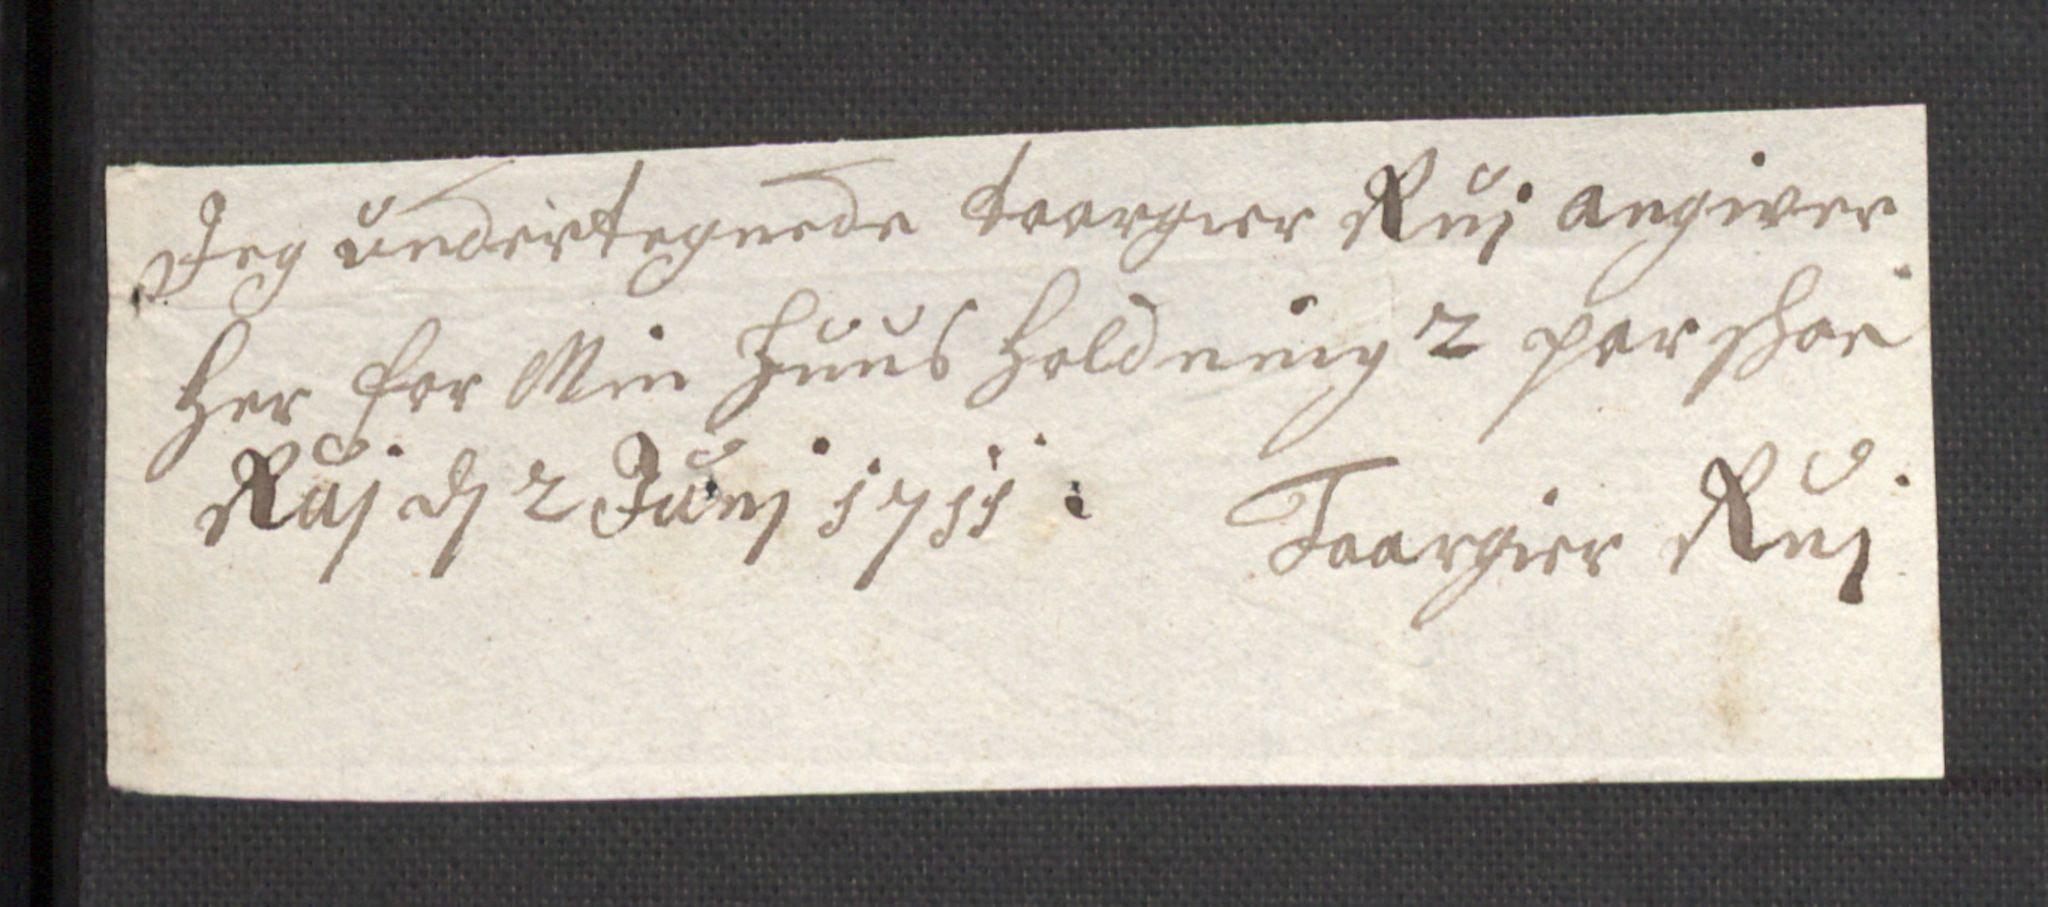 Jeg undertegnede Taargier Ruj angiver
her for Min Huus holdning 2 par skoe
Ruj d 2 Junj 1711.
Taargier Ruj